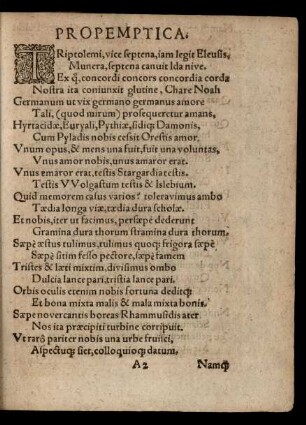 PROPEMPTICA.
TRiptolemi, vice septena, iam legit Eleusis,
Munera, septena canuit Ida nive.
Ex q̃, concordi concors concordia corda
Nostra ita coniunxit glutine, Chare Noah
Germanum ut vix germano germanus amore
Tali, (quod mirum) prosequeretur amans,
Hyrtacidæ, Euryali, Pythiæ, fidiq; Damonis,
Cum Pyladis nobis cessit Orestis amor.
Vnum opus, & mens una fuit, fuit una voluntas,
Vnus amor nobis, unus amaror erat.
Vnus emaror erat, testis Stargardia testis.
Testis VVolgastum testis & Islebium.
Quid memorem casus varios? toleravimus ambo
Tædia longa viæ, tædia dura scholæ.
Et nobis, iter ut facimus, persæpè dederunt
Gramina dura thorum stramina dura thorum.
Sæpè æstus tulimus, tulimus quoq; frigora sæpè
Sæpè sitim fesso pectore, sæpè famem
Tristes & læti mixtim, divisimus ambo
Dulcia lance pari, tristia lance pari.
Orbis oculis etenim nobis fortuna deditq;
Et bona mixta malis & mala mixta bonis.
Sæpe novercantis boreas Rhamnusidis ater
Nos ita præcipiti turbine corripuit.
Vt rarò pariter nobis una urbe fruisci,
Aspectuq; siet, colloquioq; datum.
A2 Namq;